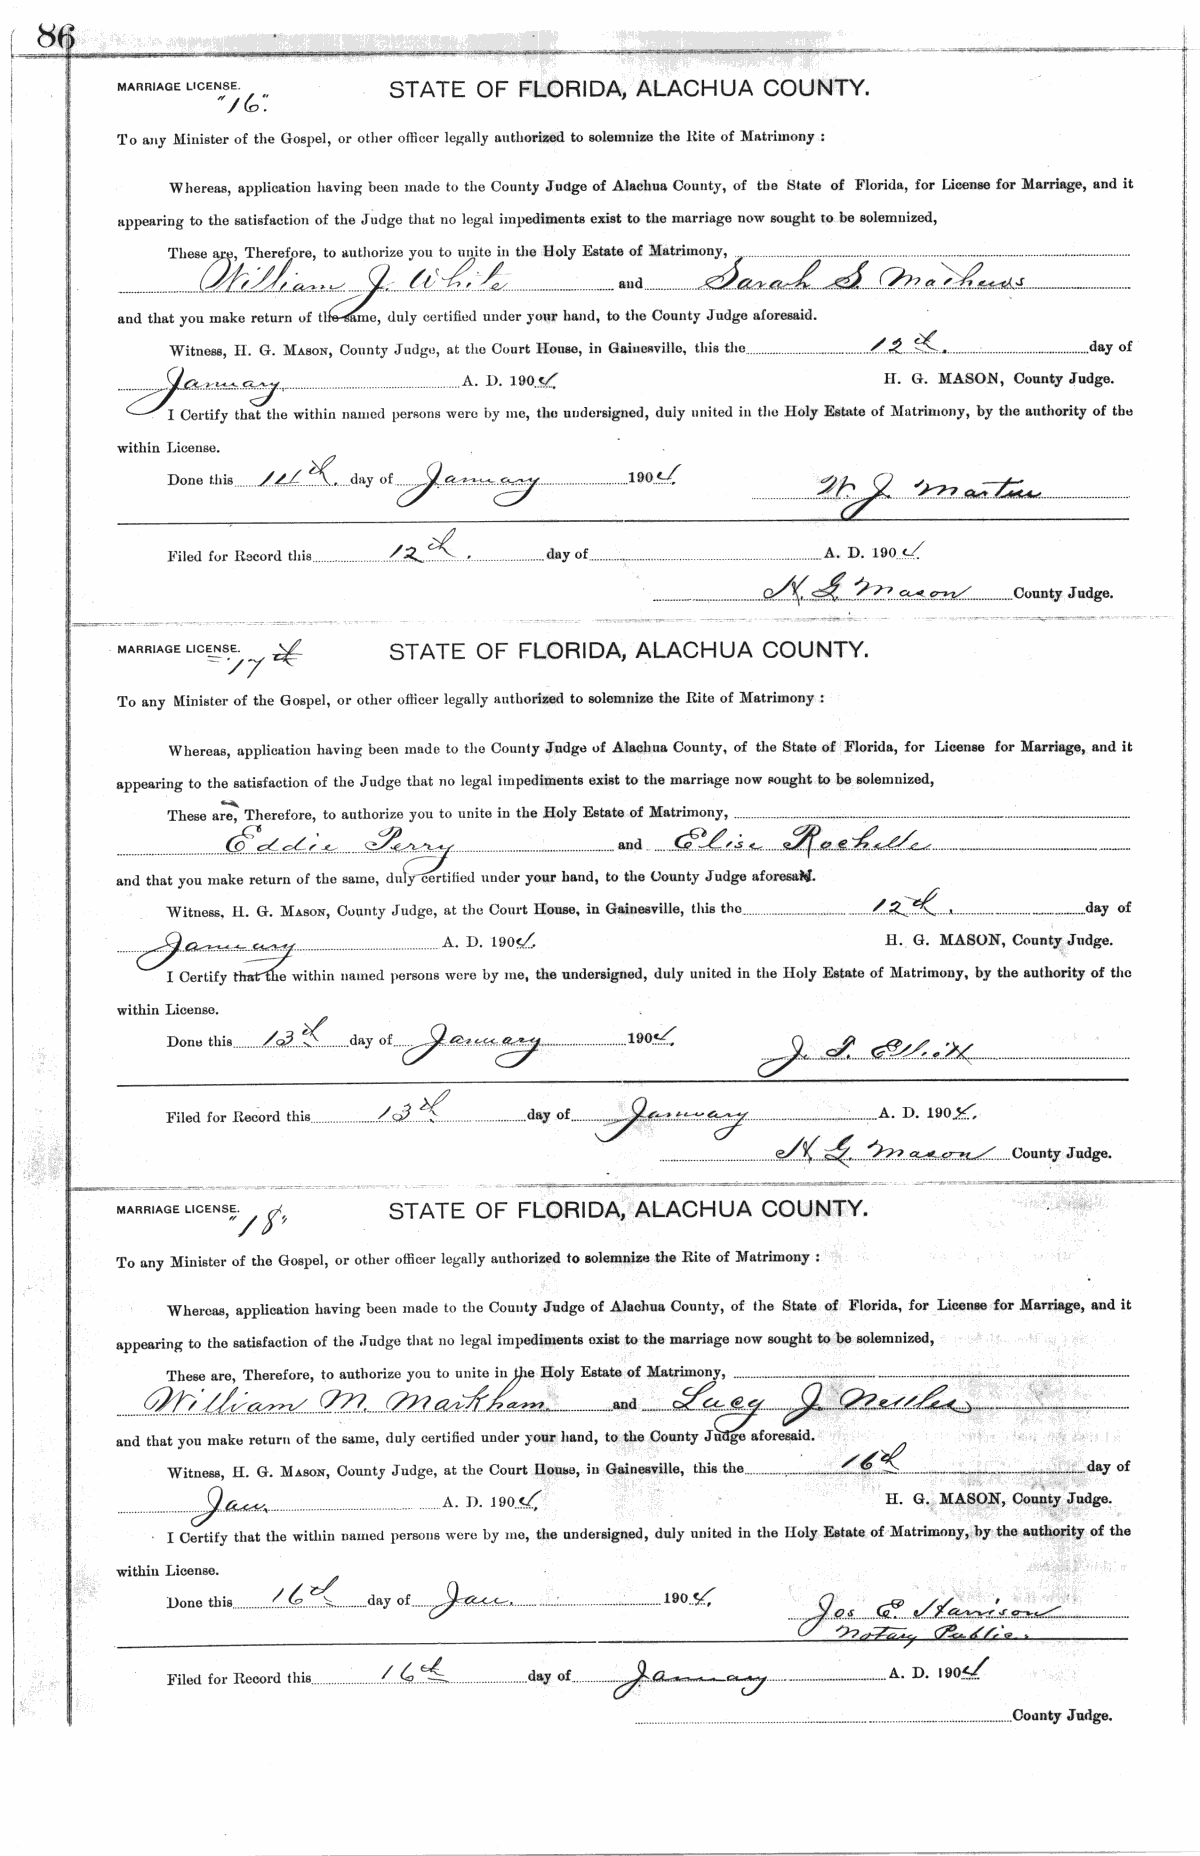 86
MARRIAGE LICENSE. STATE OF FLORIDA, ALACHUA COUNTY.
"16".
To any Minister of the Gospel, or other officer legally authorized to solemnize the Rite of Matrimony :
Whereas, application having been made to the County Judge of Alachua County, of the State of Florida, for License for Marriage, and it
appearing to the satisfaction of the Judge that no legal impediments exist to the marriage now sought to be solemnized,
These are, Therefore, to authorize you to unite in the Holy Estate of Matrimony,
William J. White and Sarah S. Mathews
and that you make return of the same, duly certified under your hand, to the County Judge aforesaid.
Witness, H. G. MASON, County Judge, at the Court House, in Gainesville, this the 12th. day of
January A. D. 1904. H. G. MASON, County Judge.
I Certify that the within named persons were by me, the undersigned, duly united in the Holy Estate of Matrimony, by the authority of the
within License.
Done this 14th. day of January 1904. W. J. Martin
Filed for Record this 12th. day of A. D. 1904.
H. G. Mason County Judge.
MARRIAGE LICENSE. STATE OF FLORIDA, ALACHUA COUNTY.
17th
To any Minister of the Gospel, or other officer legally authorized to solemnize the Rite of Matrimony :
Whereas, application having been made to the County Judge of Alachua County, of the State of Florida, for License for Marriage, and it
appearing to the satisfaction of the Judge that no legal impediments exist to the marriage now sought to be solemnized,
These are, Therefore, to authorize you to unite in the Holy Estate of Matrimony,
Eddie Perry and Elise Rochelle
and that you make return of the same, duly certified under your hand, to the County Judge aforesaid.
Witness, H. G. MASON, County Judge, at the Court House, in Gainesville, this the 12th. day of
January A. D. 1904. H. G. MASON, County Judge.
I Certify that the within named persons were by me, the undersigned, duly united in the Holy Estate of Matrimony, by the authority of the
within License.
Done this 13th day of January 1904. J. T. Elliott
Filed for Record this 13th day of January A. D. 1904.
H. G. Mason County Judge.
MARRIAGE LICENSE. STATE OF FLORIDA, ALACHUA COUNTY.
"18"
To any Minister of the Gospel, or other officer legally authorized to solemnize the Rite of Matrimony :
Whereas, application having been made to the County Judge of Alachua County, of the State of Florida, for License for Marriage, and it
appearing to the satisfaction of the Judge that no legal impediments exist to the marriage now sought to be solemnized,
These are, Therefore, to authorize you to unite in the Holy Estate of Matrimony,
William M. Markham. and Lucy J. Nettles
and that you make return of the same, duly certified under your hand, to the County Judge aforesaid.
Witness, H. G. MASON, County Judge, at the Court House, in Gainesville, this the 16th day of
Jan. A. D. 1904. H. G. MASON, County Judge.
I Certify that the within named persons were by me, the undersigned, duly united in the Holy Estate of Matrimony, by the authority of the
within License.
Done this 16th day of Jan. 1904. Jos E. Harrison
Notary Public.
Filed for Record this 16th day of January A. D. 1904
County Judge.